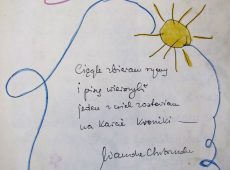 Ciągle zbieram rymy
i piszę wierszyki
jeden z wielu zostawiam
na karcie Kroniki —
Wanda Chotomska